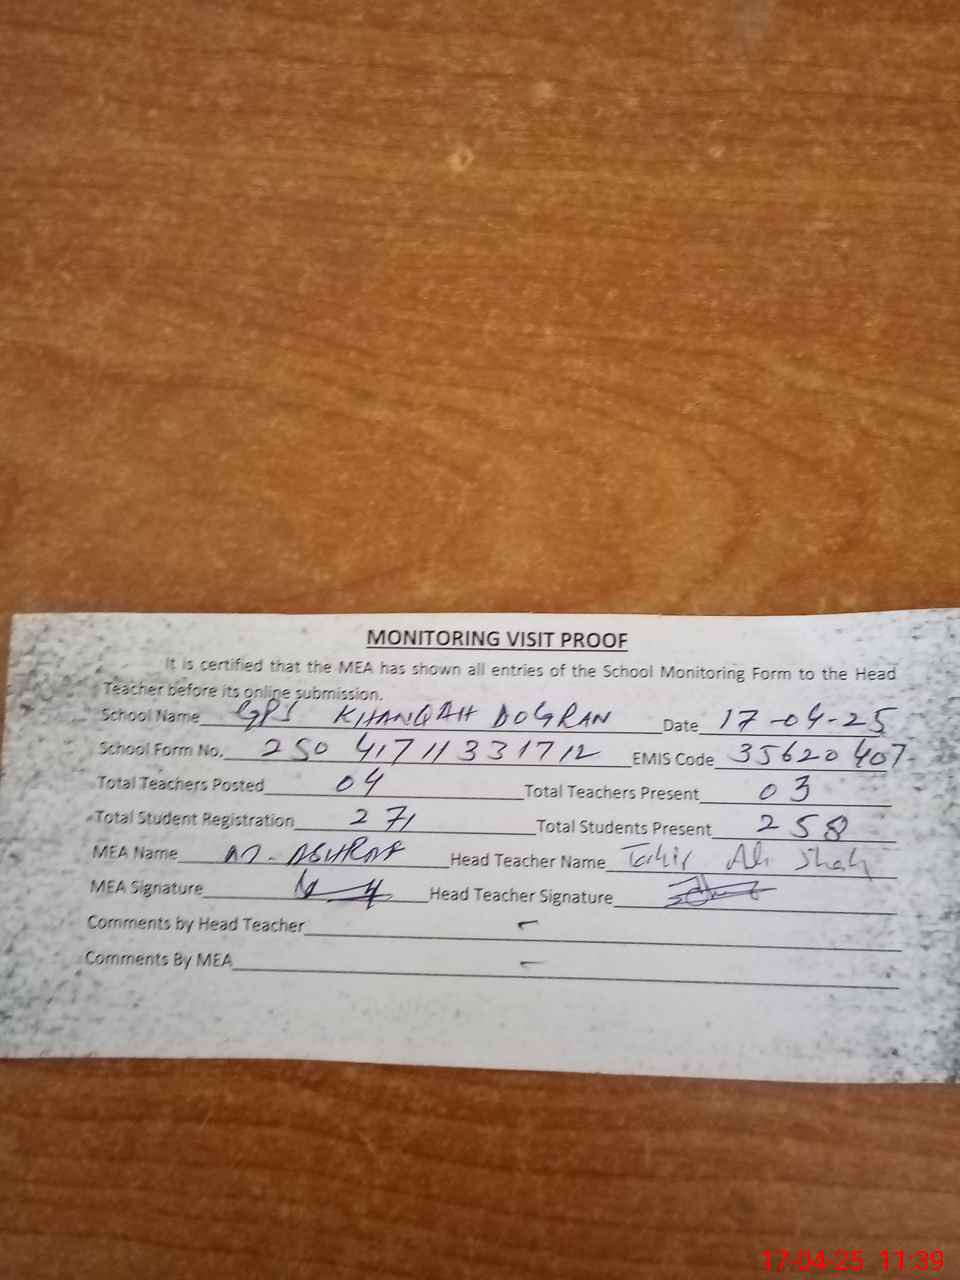 MONITORING VISIT PROOF
It is certified that the MEA has shown all entries of the School Monitoring Form to the Head
Teacher before its online submission.
School Name GPS KHANQAH DOGRAN Date 17-04-25
School Form No. 250 417 11 33 17 12 EMIS Code 35620407
Total Teachers Posted 04 Total Teachers Present 03
Total Student Registration 271 Total Students Present 258
MEA Name M. ASHRAF Head Teacher Name Tahir Ali Shah
MEA Signature Head Teacher Signature
Comments by Head Teacher -
Comments By MEA -
17-04-25 11:39